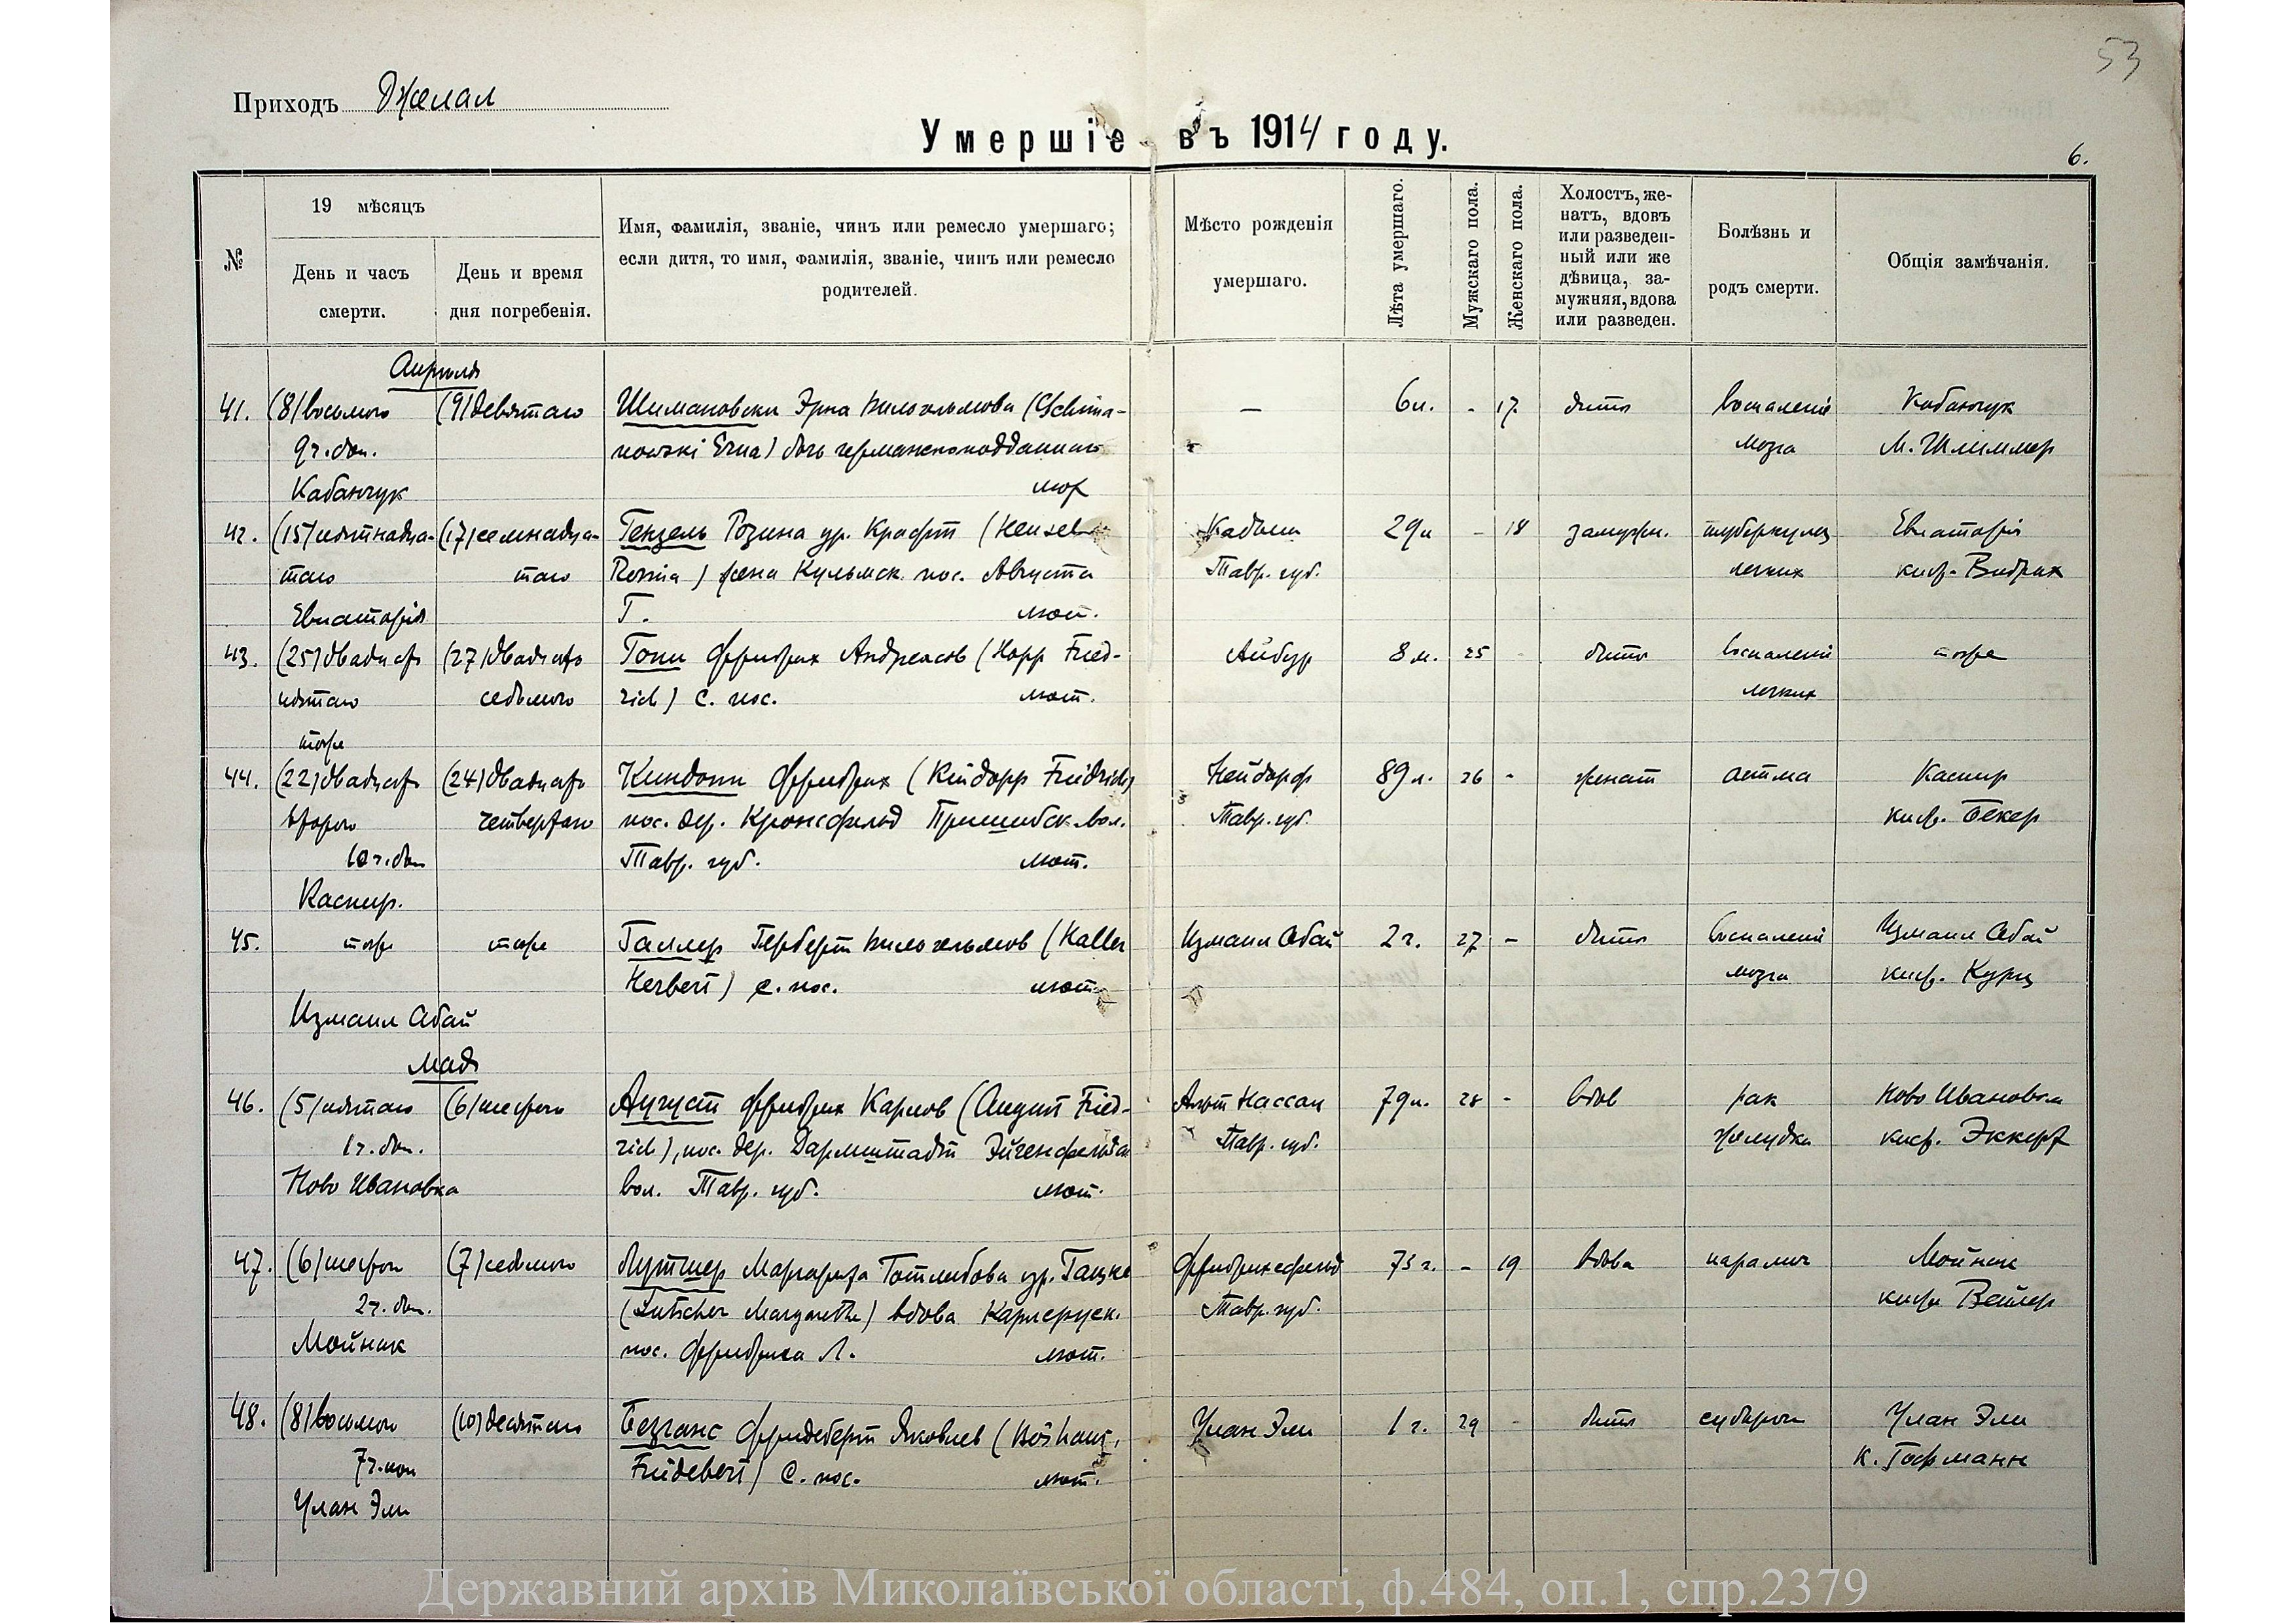 53
Приходъ Джелал
Умершіе въ 1914 году.
6.
№
19 мѣсяцъ
День и часъ смерти.
День и время дня погребенія.
Имя, фамилія, званіе, чинъ или ремесло умершаго;
если дитя, то имя, фамилія, званіе, чинъ или ремесло
родителей.
Мѣсто рожденія
умершаго.
Лѣта умершаго.
Мужскаго пола.
Женскаго пола.
Холостъ, же-
натъ, вдовъ
или разведен-
ный или же
дѣвица, за-
мужняя, вдова
или разведен.
Болѣзнь и
родъ смерти.
Общія замѣчанія.
Апрѣля
41. (8) восьмого (9) девятаго Шимановски Эрна Вильгельмова (Schima- — 6 - 17 дитя воспаленіе Кабанчук
9 ч. дн. nowski Erna) дочь германскоподданнаго мозга М. Шлиммер
Кабанчук лют
42. (15) пятнадца- (17) семнадца- Гензель Розина ур. Крафт (Hensel Кадыш 29 л - 18 замужн. туберкулез Евпаторія
таго таго Rosina) жена Кульмск. пос. Августа Тавр. губ. легких кист. Видрих
Евпаторія Г. лют.
43. (25) двадцать (27) двадцать Гопп Фридрих Андреасов (Hopp Fried- Айбур 8 м. 25 - дитя воспаленіе тоже
пятаго седьмого rich) с. пос. лют. легких
тоже
44. (22) двадцать (24) двадцать Киндопп Фридрих (Kindopp Friedrich) Нейдорф 89 л. 26 - женат астма Каспир
второго четвертаго пос. дер. Кронсфельд Пришибск. вол. Тавр. губ. кист. Бекер
10 ч. дн Тавр. губ. лют.
Каспир.
45. тоже тоже Галлер Герберт Вильгельмов (Haller Измаил Абай 2 г. 27 - дитя воспаленіе Измаил Абай
Herbert) с. пос. лют. мозга кист. Курц
Измаил Абай
Мая
46. (5) пятаго (6) шестого Аугуст Фридрих Карлов (August Fried- Альт Нассау 79 л. 28 - вдов рак Ново Ивановка
1 ч. дн. rich), пос. дер. Дармштадт Эйгенфельда Тавр. губ. желудка кист. Эккерт
Ново Ивановка вол. Тавр. губ. лют.
47. (6) шестого (7) седьмого Лутшер Маргарета Готлибова ур. Гацке Фридрихсфельд 73 г. - 19 вдова паралич Мойнак
2 ч. дн. (Lutscher Margarethe) вдова Карлсруск. Тавр. губ. кист. Вейлер
Мойнак пос. Фридриха Л. лют.
48. (8) восьмого (10) десятаго Безганс Фридеберт Яковлев (Böshans, Улан Эли 1 г. 29 - дитя судороги Улан Эли
7 ч.ноч Friedebert) с. пос. лют. К. Гофманн
Улан Эли
Державний архів Миколаївської області, ф.484, оп.1, спр.2379